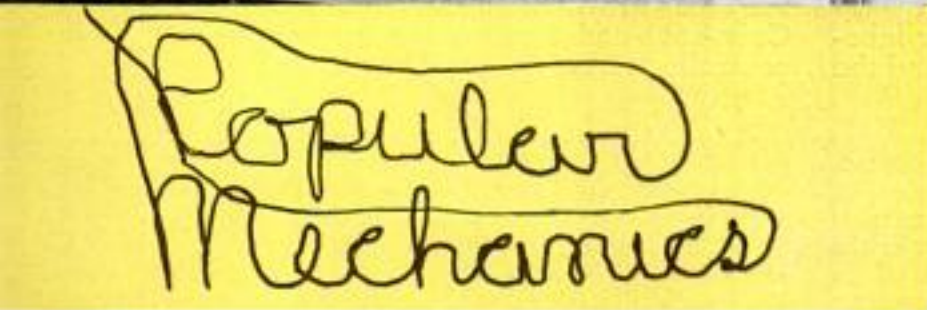 Popular
Mechanics